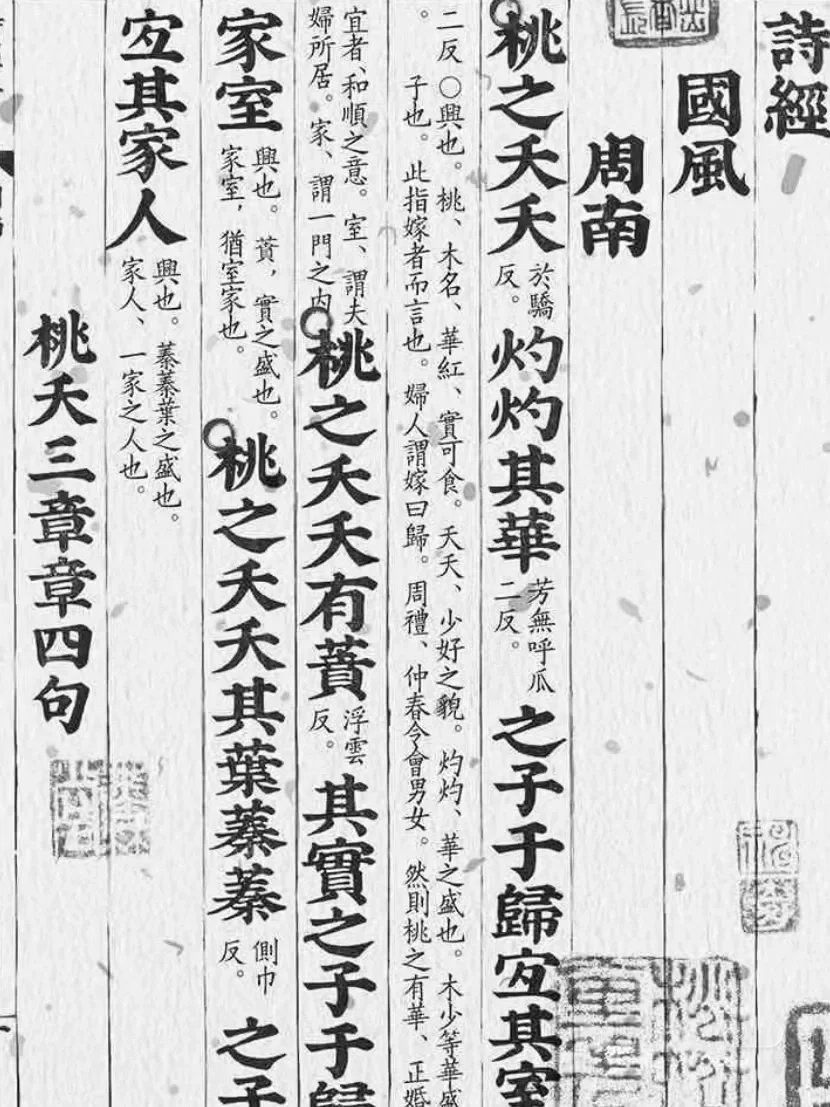 詩經
國風
周南
桃之夭夭於驕反。灼灼其華芳無呼瓜二反。之子于歸宐其室
二反。○興也。桃、木名、華紅、實可食。夭夭、少好之貌。灼灼、華之盛也。木少等華盛
子也。此指嫁者而言也。婦人謂嫁曰歸。周禮、仲春令會男女。然則桃之有華、正婚
宜者、和順之意。室、謂夫婦所居。家、謂一門之内桃之夭夭有蕡浮雲反。其實之子于歸
家室興也。蕡，實之盛也。家室，猶室家也。桃之夭夭其葉蓁蓁側巾反。之子
宐其家人興也。蓁蓁葉之盛也。家人、一家之人也。
桃夭三章章四句